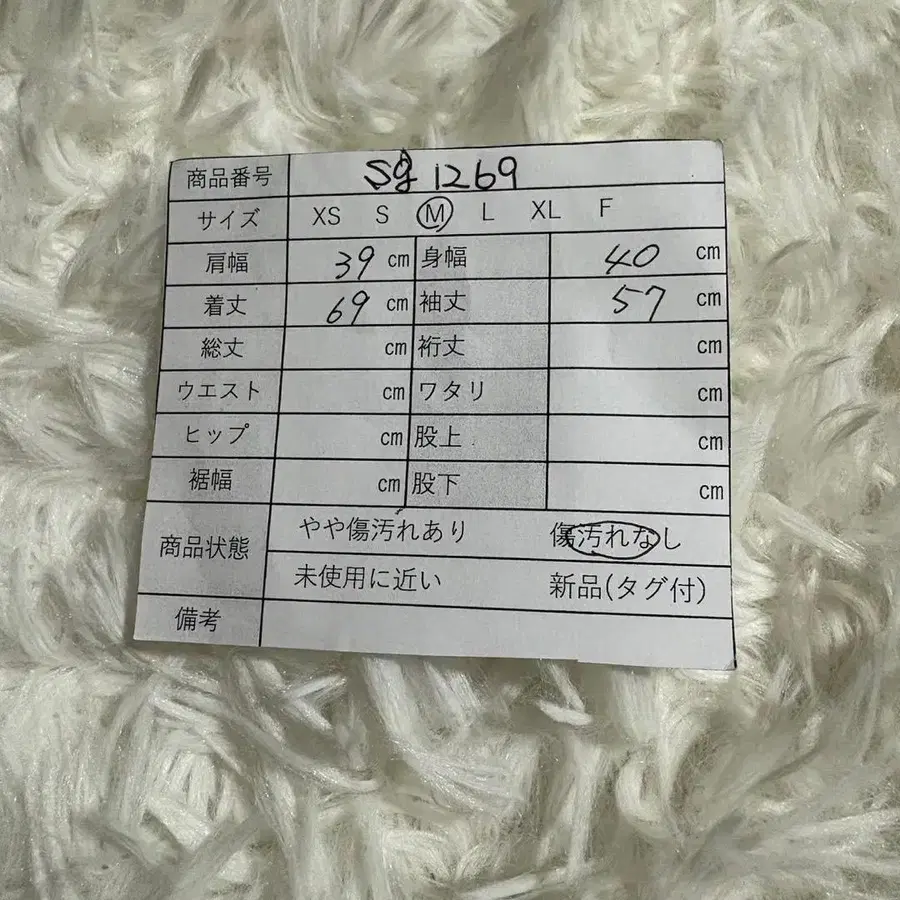 商品番号 sg 1269
サイズ XS S M L XL F
肩幅 39 cm 身幅 40 cm
着丈 69 cm 袖丈 57 cm
総丈 cm 裄丈 cm
ウエスト cm ワタリ cm
ヒップ cm 股上 cm
裾幅 cm 股下 cm
商品状態 やや傷汚れあり 傷汚れなし
未使用に近い 新品(タグ付)
備考